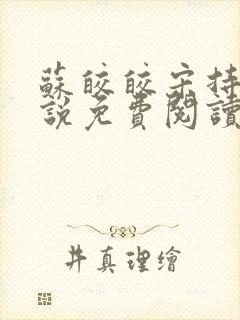 蘇皎皎宋持
說免費閱讀
井真理繪